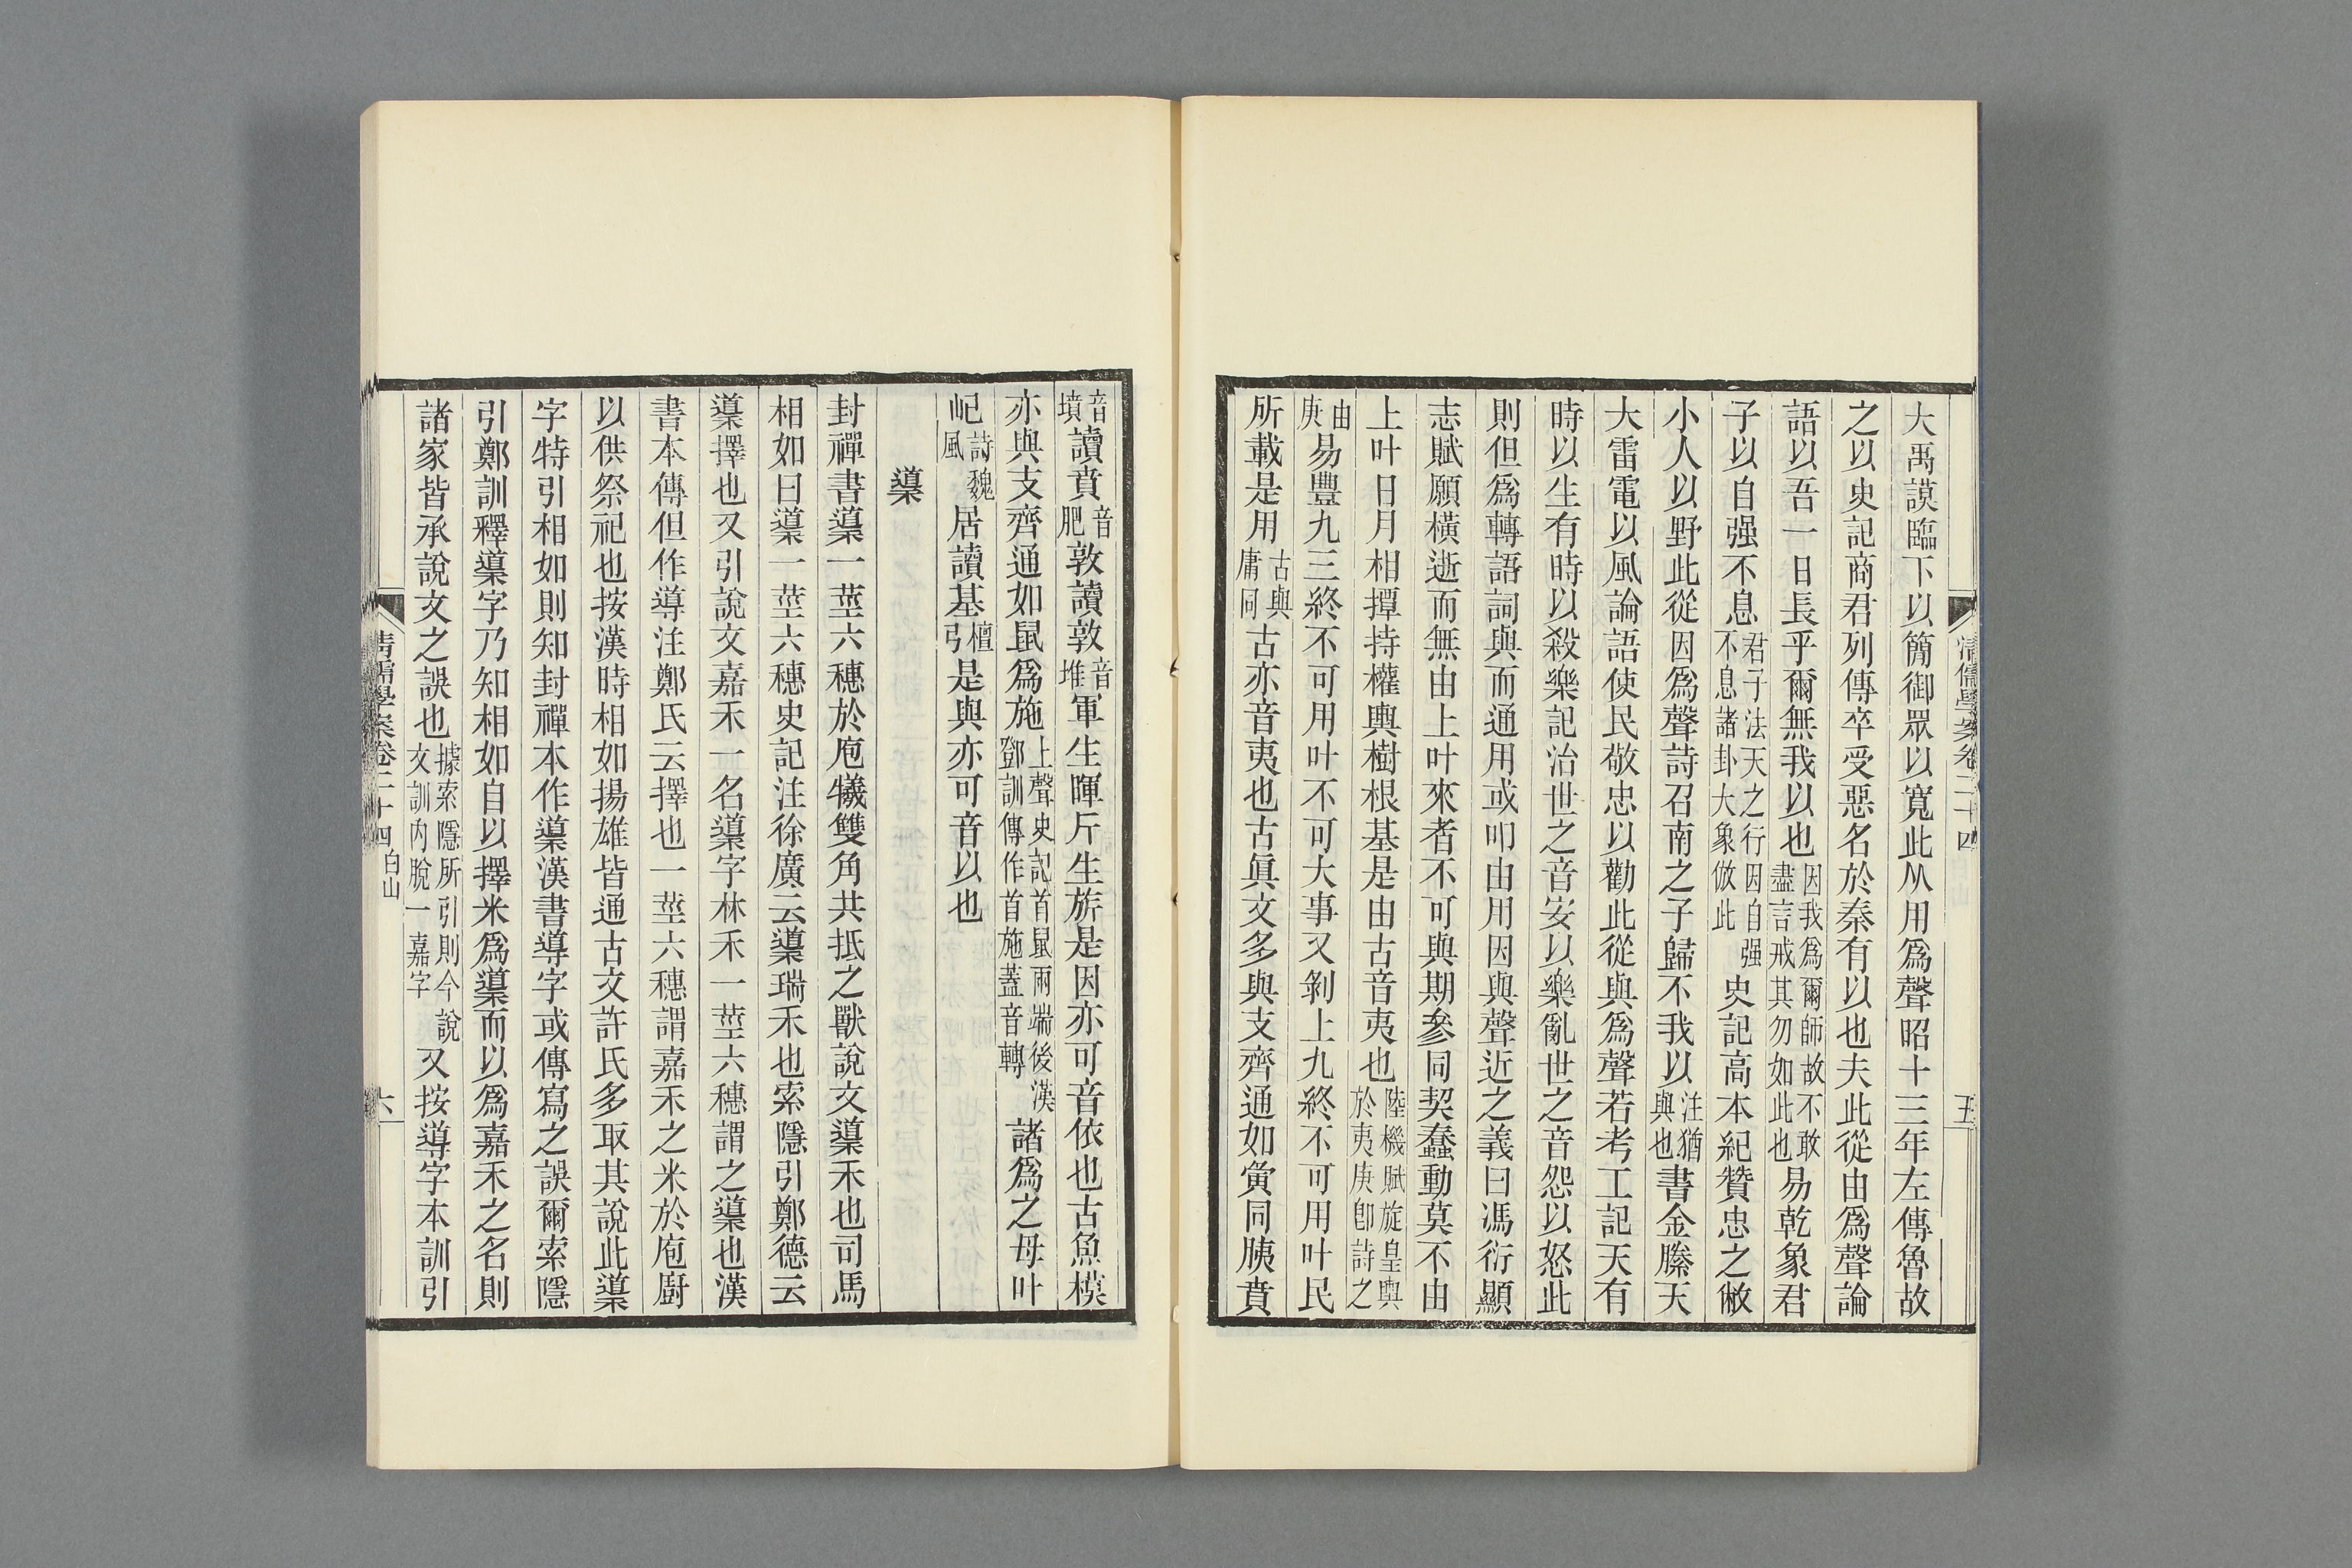 清儒學案卷二十四
五
大禹謨臨下以簡御眾以寬此从用爲聲昭十三年左傳魯故
之以史記商君列傳卒受惡名於秦有以也夫此從由爲聲論
語以吾一日長乎爾無我以也因我爲爾師故不敢盡言戒其勿如此也易乾象君
子以自强不息君子法天之行因自强不息諸卦大象倣此史記高本紀贊忠之敝
小人以野此從因爲聲詩召南之子歸不我以注猶與也書金縢天
大雷電以風論語使民敬忠以勸此從與爲聲若考工記天有
時以生有時以殺樂記治世之音安以樂亂世之音怨以怒此
則但爲轉語詞與而通用或叩由用因與聲近之義曰馮衍顯
志賦願橫逝而無由上叶來者不可與期參同契蠢動莫不由
上叶日月相撢持權輿樹根基是由古音夷也陸機賦旋皇輿於夷庚卽詩之
由庚易豐九三終不可用叶不可大事又剝上九終不可用叶民
所載是用古與庸同古亦音夷也古眞文多與支齊通如夤同胰賁
音墳讀賁音肥敦讀敦音堆軍生暉斤生旂是因亦可音依也古魚模
亦與支齊通如鼠爲施上聲史記首鼠兩端後漢鄧訓傳作首施蓋音轉諸爲之母叶
屺詩魏風居讀基檀引是與亦可音以也
䆃
封禪書䆃一莖六穗於庖犧雙角共抵之獸說文䆃禾也司馬
相如曰䆃一莖六穗史記注徐廣云䆃瑞禾也索隱引鄭德云
䆃擇也又引說文嘉禾一名䆃字林禾一莖六穗謂之䆃也漢
書本傳但作導注鄭氏云擇也一莖六穗謂嘉禾之米於庖廚
以供祭祀也按漢時相如揚雄皆通古文許氏多取其說此䆃
字特引相如則知封禪本作䆃漢書導字或傳寫之誤爾索隱
引鄭訓釋䆃字乃知相如自以擇米爲䆃而以爲嘉禾之名則
諸家皆承說文之誤也據索隱所引則今說文訓內脫一嘉字又按導字本訓引
清儒學案卷二十四 白山
六